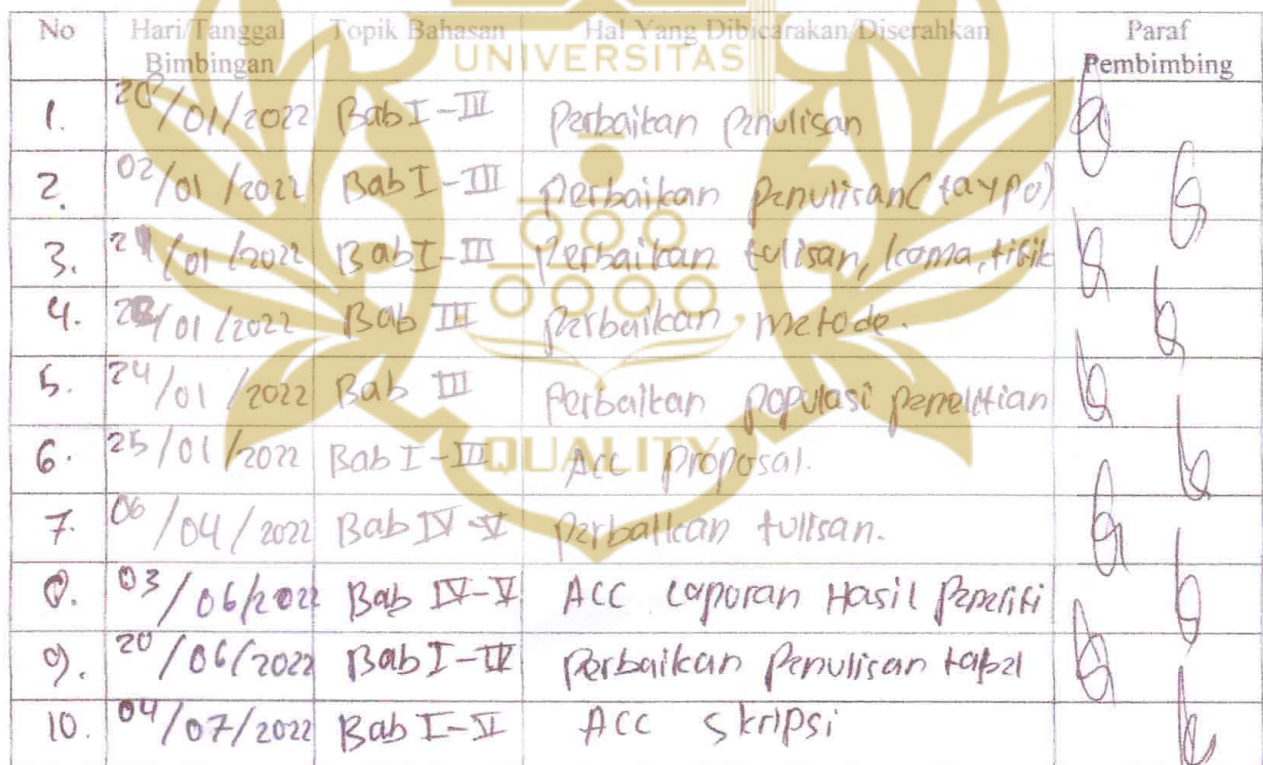 No Hari/Tanggal Topik Bahasan Hal Yang Dibicarakan/Diserahkan Paraf
Bimbingan Pembimbing
UNIVERSITAS
1. 20/01/2022 Bab I-III Perbaikan penulisan
2. 02/01/2022 Bab I-III Perbaikan penulisan (taypo)
3. 21/01/2022 Bab I-III Perbaikan tulisan, koma, titik
4. /01/2022 Bab III Perbaikan metode.
5. 24/01/2022 Bab III Perbaikan populasi penelitian
6. 25/01/2022 Bab I-III Acc proposal.
QUALITY
7. 06/04/2022 Bab IV-V Perbaikan tulisan.
8. 03/06/2022 Bab IV-V ACC Laporan Hasil Peneliti
9. 20/06/2022 Bab I-IV Perbaikan Penulisan tabel
10. 04/07/2022 Bab I-V ACC Skripsi